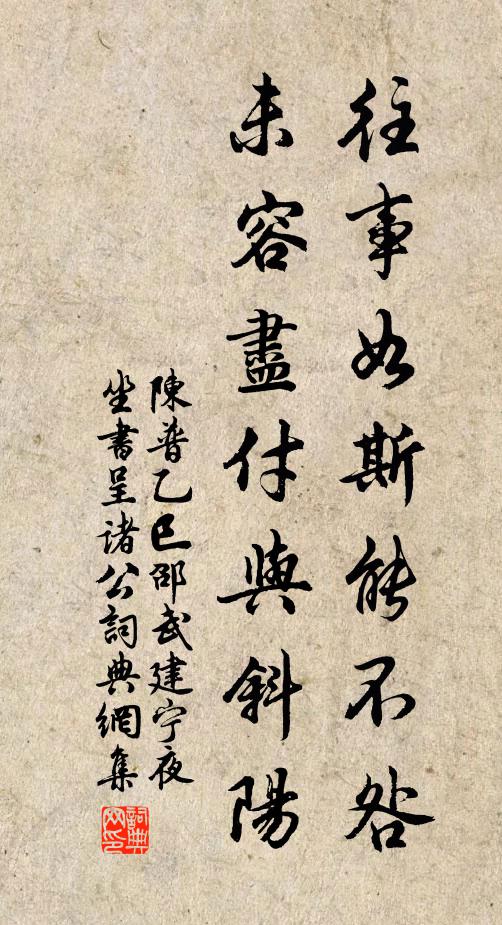 往事如斯能不咎
未容盡付與斜陽
陳普乙巳邵武建宁夜
坐書呈諸公詞典網集
詞典
网印